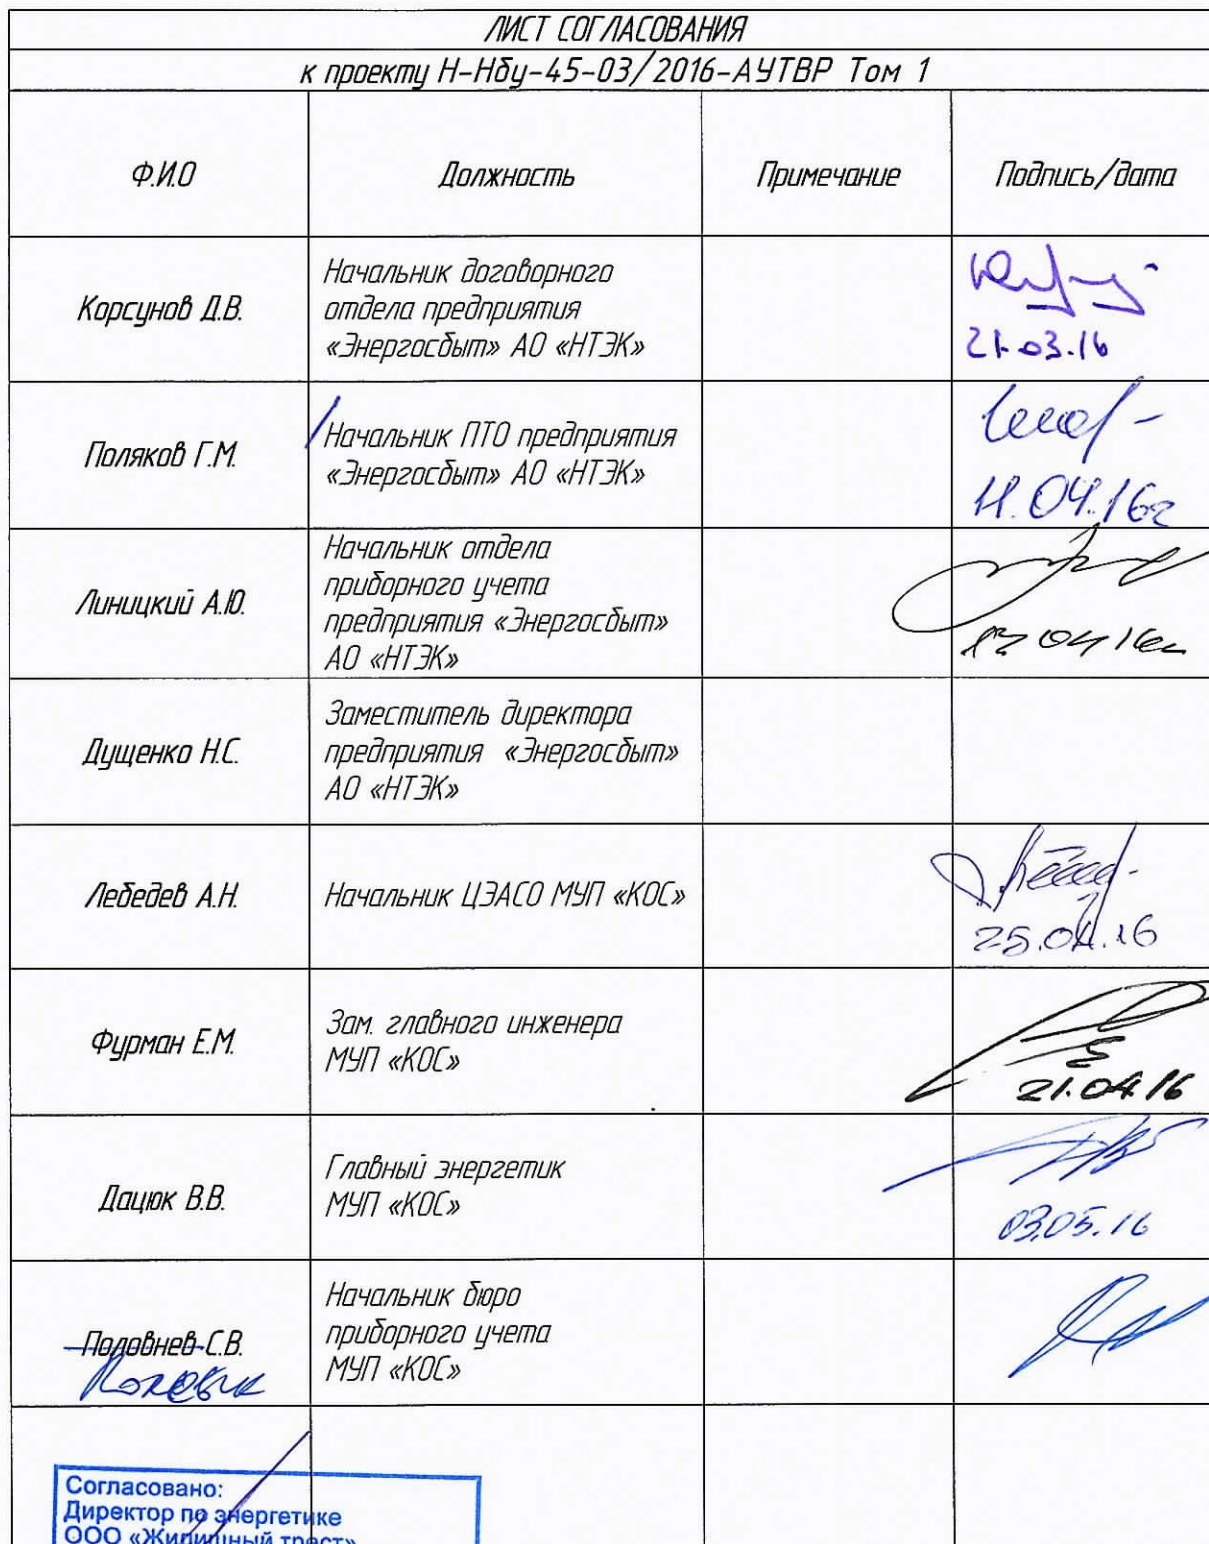 ЛИСТ СОГЛАСОВАНИЯ
к проекту Н-Нбу-45-03/2016-АУТВР Том 1
Ф.И.О Должность Примечание Подпись/дата
Корсунов Д.В.
Начальник договорного
отдела предприятия
«Энергосбыт» АО «НТЭК»
21.03.16
Поляков Г.М.
Начальник ПТО предприятия
«Энергосбыт» АО «НТЭК»
11.04.16г
Линицкий А.Ю.
Начальник отдела
приборного учета
предприятия «Энергосбыт»
АО «НТЭК»
Дущенко Н.С.
Заместитель директора
предприятия «Энергосбыт»
АО «НТЭК»
Лебедев А.Н.
Начальник ЦЭАСО МУП «КОС»
25.04.16
Фурман Е.М.
Зам. главного инженера
МУП «КОС»
21.04.16
Дацюк В.В.
Главный энергетик
МУП «КОС»
03.05.16
Половнев С.В.
Начальник бюро
приборного учета
МУП «КОС»
Согласовано:
Директор по энергетике
ООО «Жилищный трест»